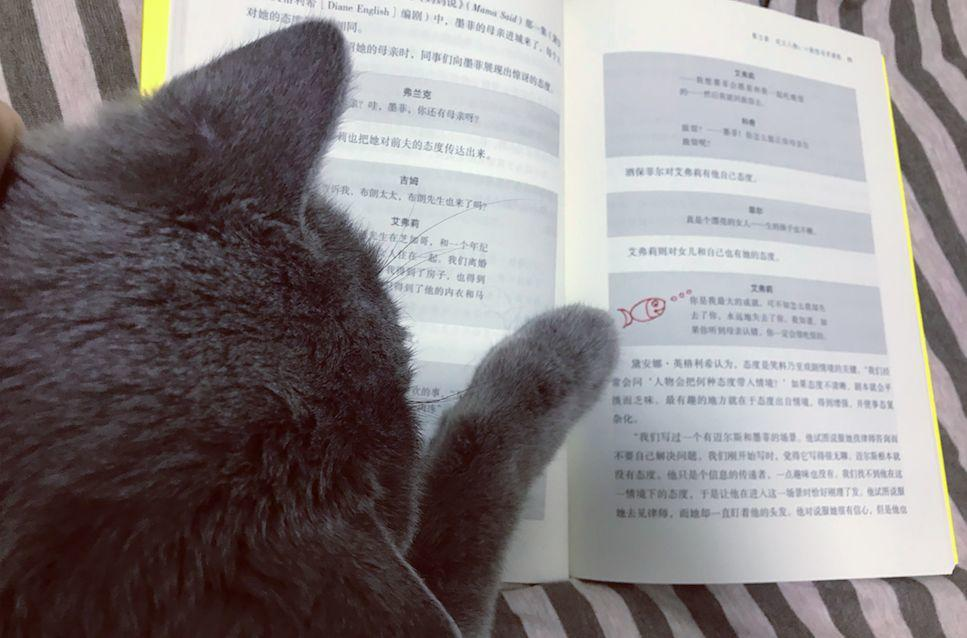 [Diane English] 编剧）中，墨菲的母亲进城来了，每个
对她的态度
相同。
她的母亲时，同事们向墨菲展现出惊讶的态度。
弗兰克
亲？哇，墨菲，你还有母亲呀？
莉也把她对前夫的态度传达出来。
吉姆
告诉我，布朗太太，布朗先生也来了吗？
艾弗莉
先生在芝加哥，和一个年纪
人住在一起。我们离婚
我得到了房子，也得到
得到了他的内衣和马
次的事，
艾弗莉
——我想墨菲会愿意和我一起吃晚饭
的——然后我就回旅馆去。
科奇
旅馆？——墨菲！你怎么能让你母亲住
旅馆呢？
酒保菲尔对艾弗莉有他自己态度。
菲尔
真是个漂亮的女人——生的孩子也不赖。
艾弗莉则对女儿和自己也有她的态度。
艾弗莉
你是我最大的成就，可不知怎么我却失
去了你，永远地失去了你。我知道，如
果你听到母亲认错，你一定会很吃惊的。
黛安娜·英格利希认为，态度是笑料乃至戏剧情境的关键。“我们经
常会问‘人物会把何种态度带入情境？’如果态度不清晰，剧本就会平
淡而乏味。最有趣的地方就在于态度出自情境，得到增强，并使事态复
杂化。
“我们写过一个有迈尔斯和墨菲的场景。他试图说服她找律师咨询而
不要自己解决问题。我们刚开始写时，觉得它写得很无聊。迈尔斯根本就
没有态度。他只是个信息的传递者，一点趣味也没有。我们找不到他在这
一情境下的态度，于是让他在进入这一场景时恰好刚理了发。他试图说服
她去见律师，而她却一直盯着他的头发。他对说服她很有信心，但是他也